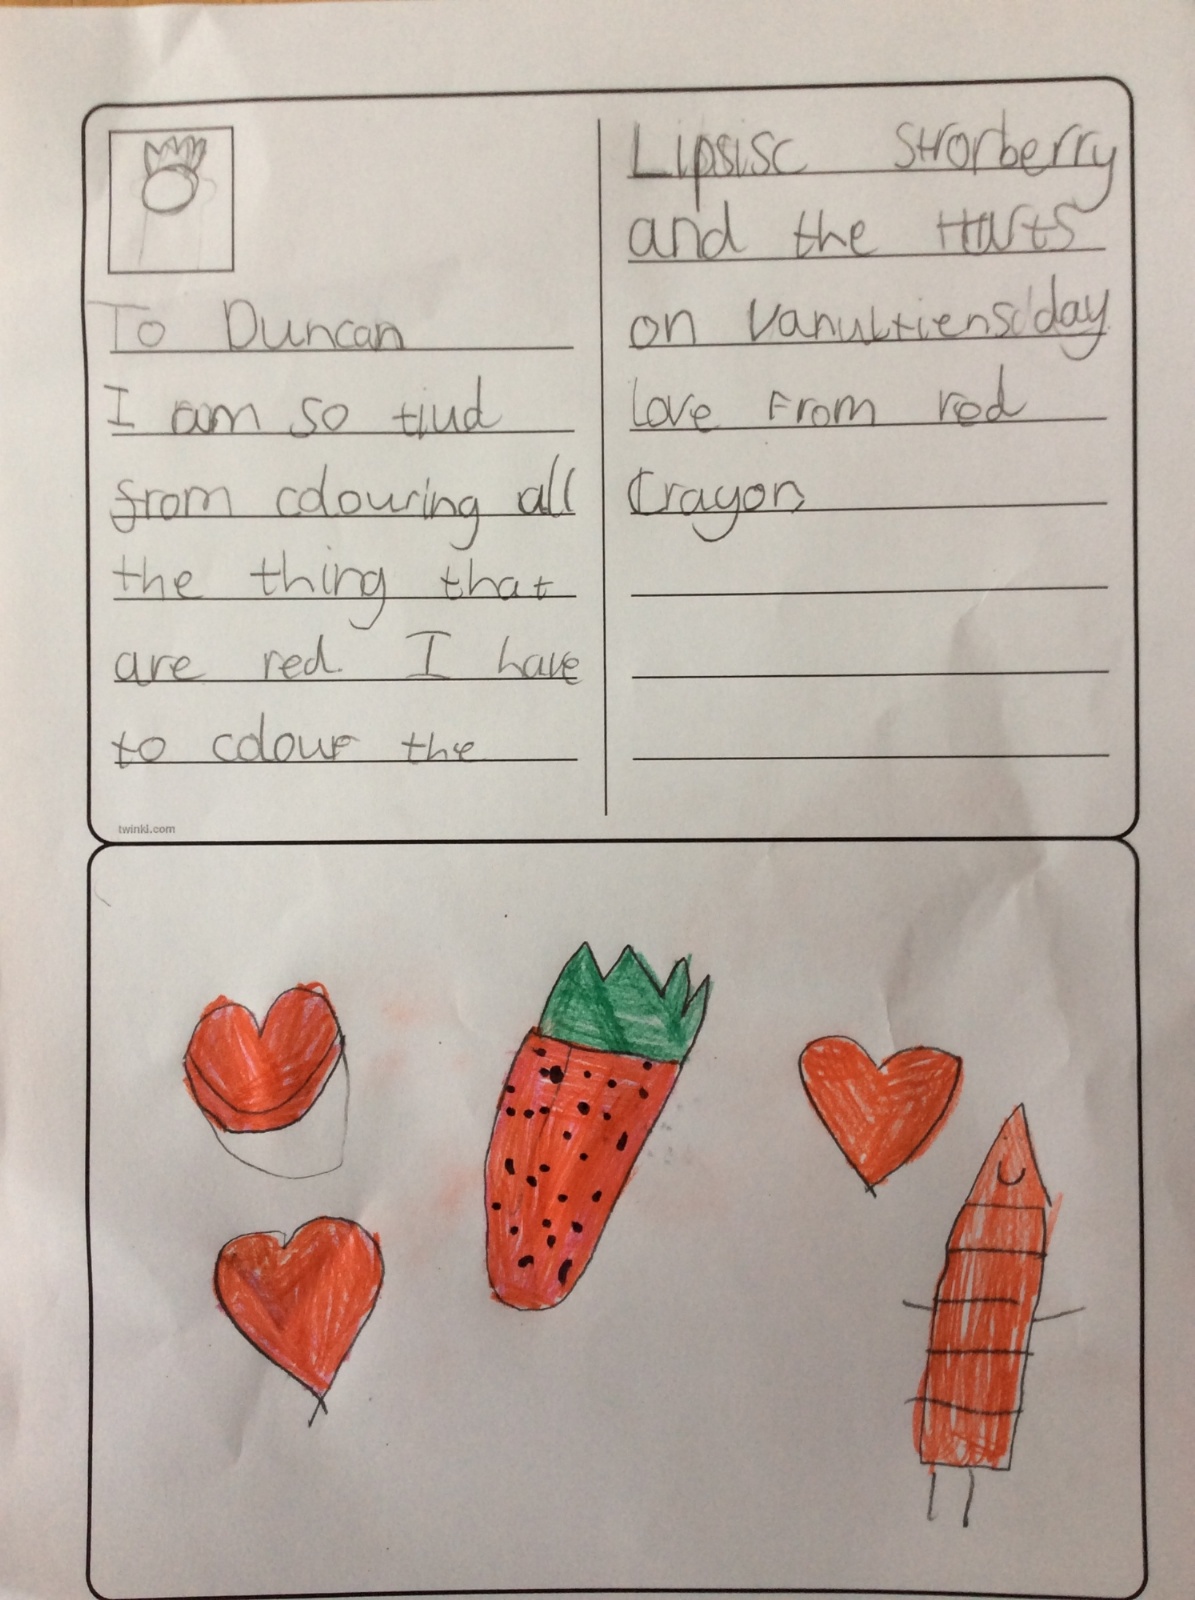 To Duncan
I am so tiud
from colouring all
the thing that
are red. I have
to colour the
twinkl.com
Lipsisc Strorberry
and the Harts
on Vanultiens day
love from red
Crayon